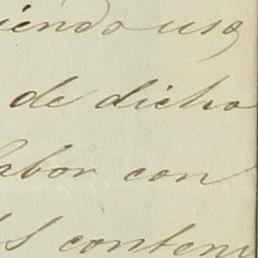 iendo uso
de dicho
labor con
conteni